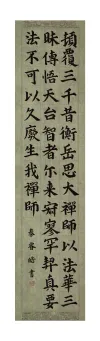 頓覆三千昔衡岳思大禪師以法華三
昧傳悟天台智者尓來寂寥罕契真要
法不可以久廢生我禪師
書